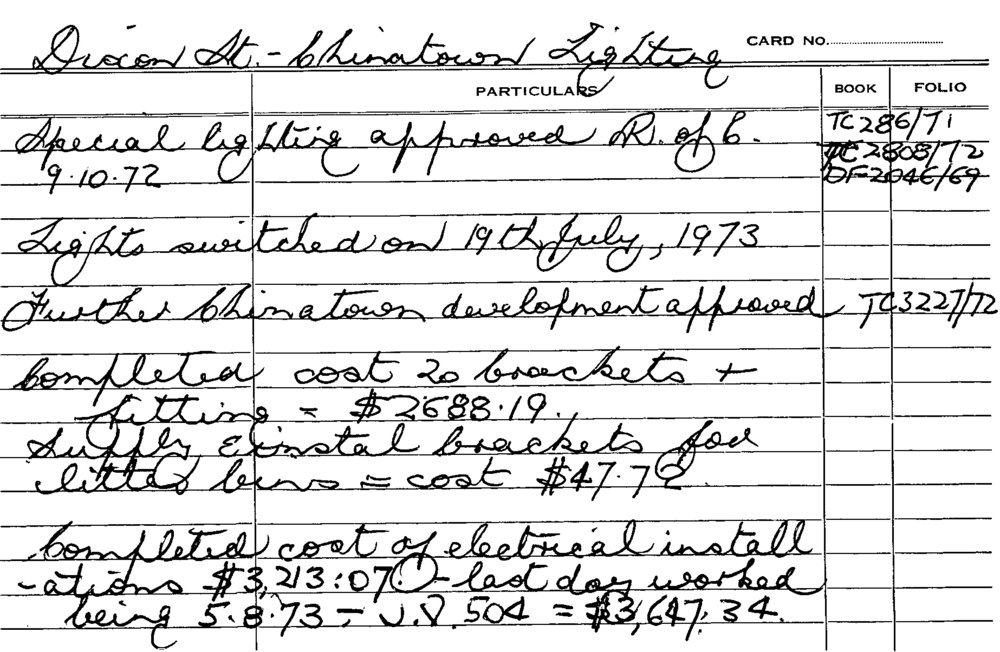 Dixon St. - Chinatown Lighting
CARD No.
PARTICULARS BOOK FOLIO
Special lighting approved R. of C. TC 286/71
9.10.72 TC 2808/72
DF 2046/69
Lights switched on 19th July, 1973
Further Chinatown development approved TC3227/72
Completed cost 20 brackets +
fitting = $2688.19.
Supply & instal brackets for
litter bins = cost $47.72
Completed cost of electrical install
-ations $3,213:07. - last day worked
being 5.8.73 - J.V. 504 = $3,647.34.